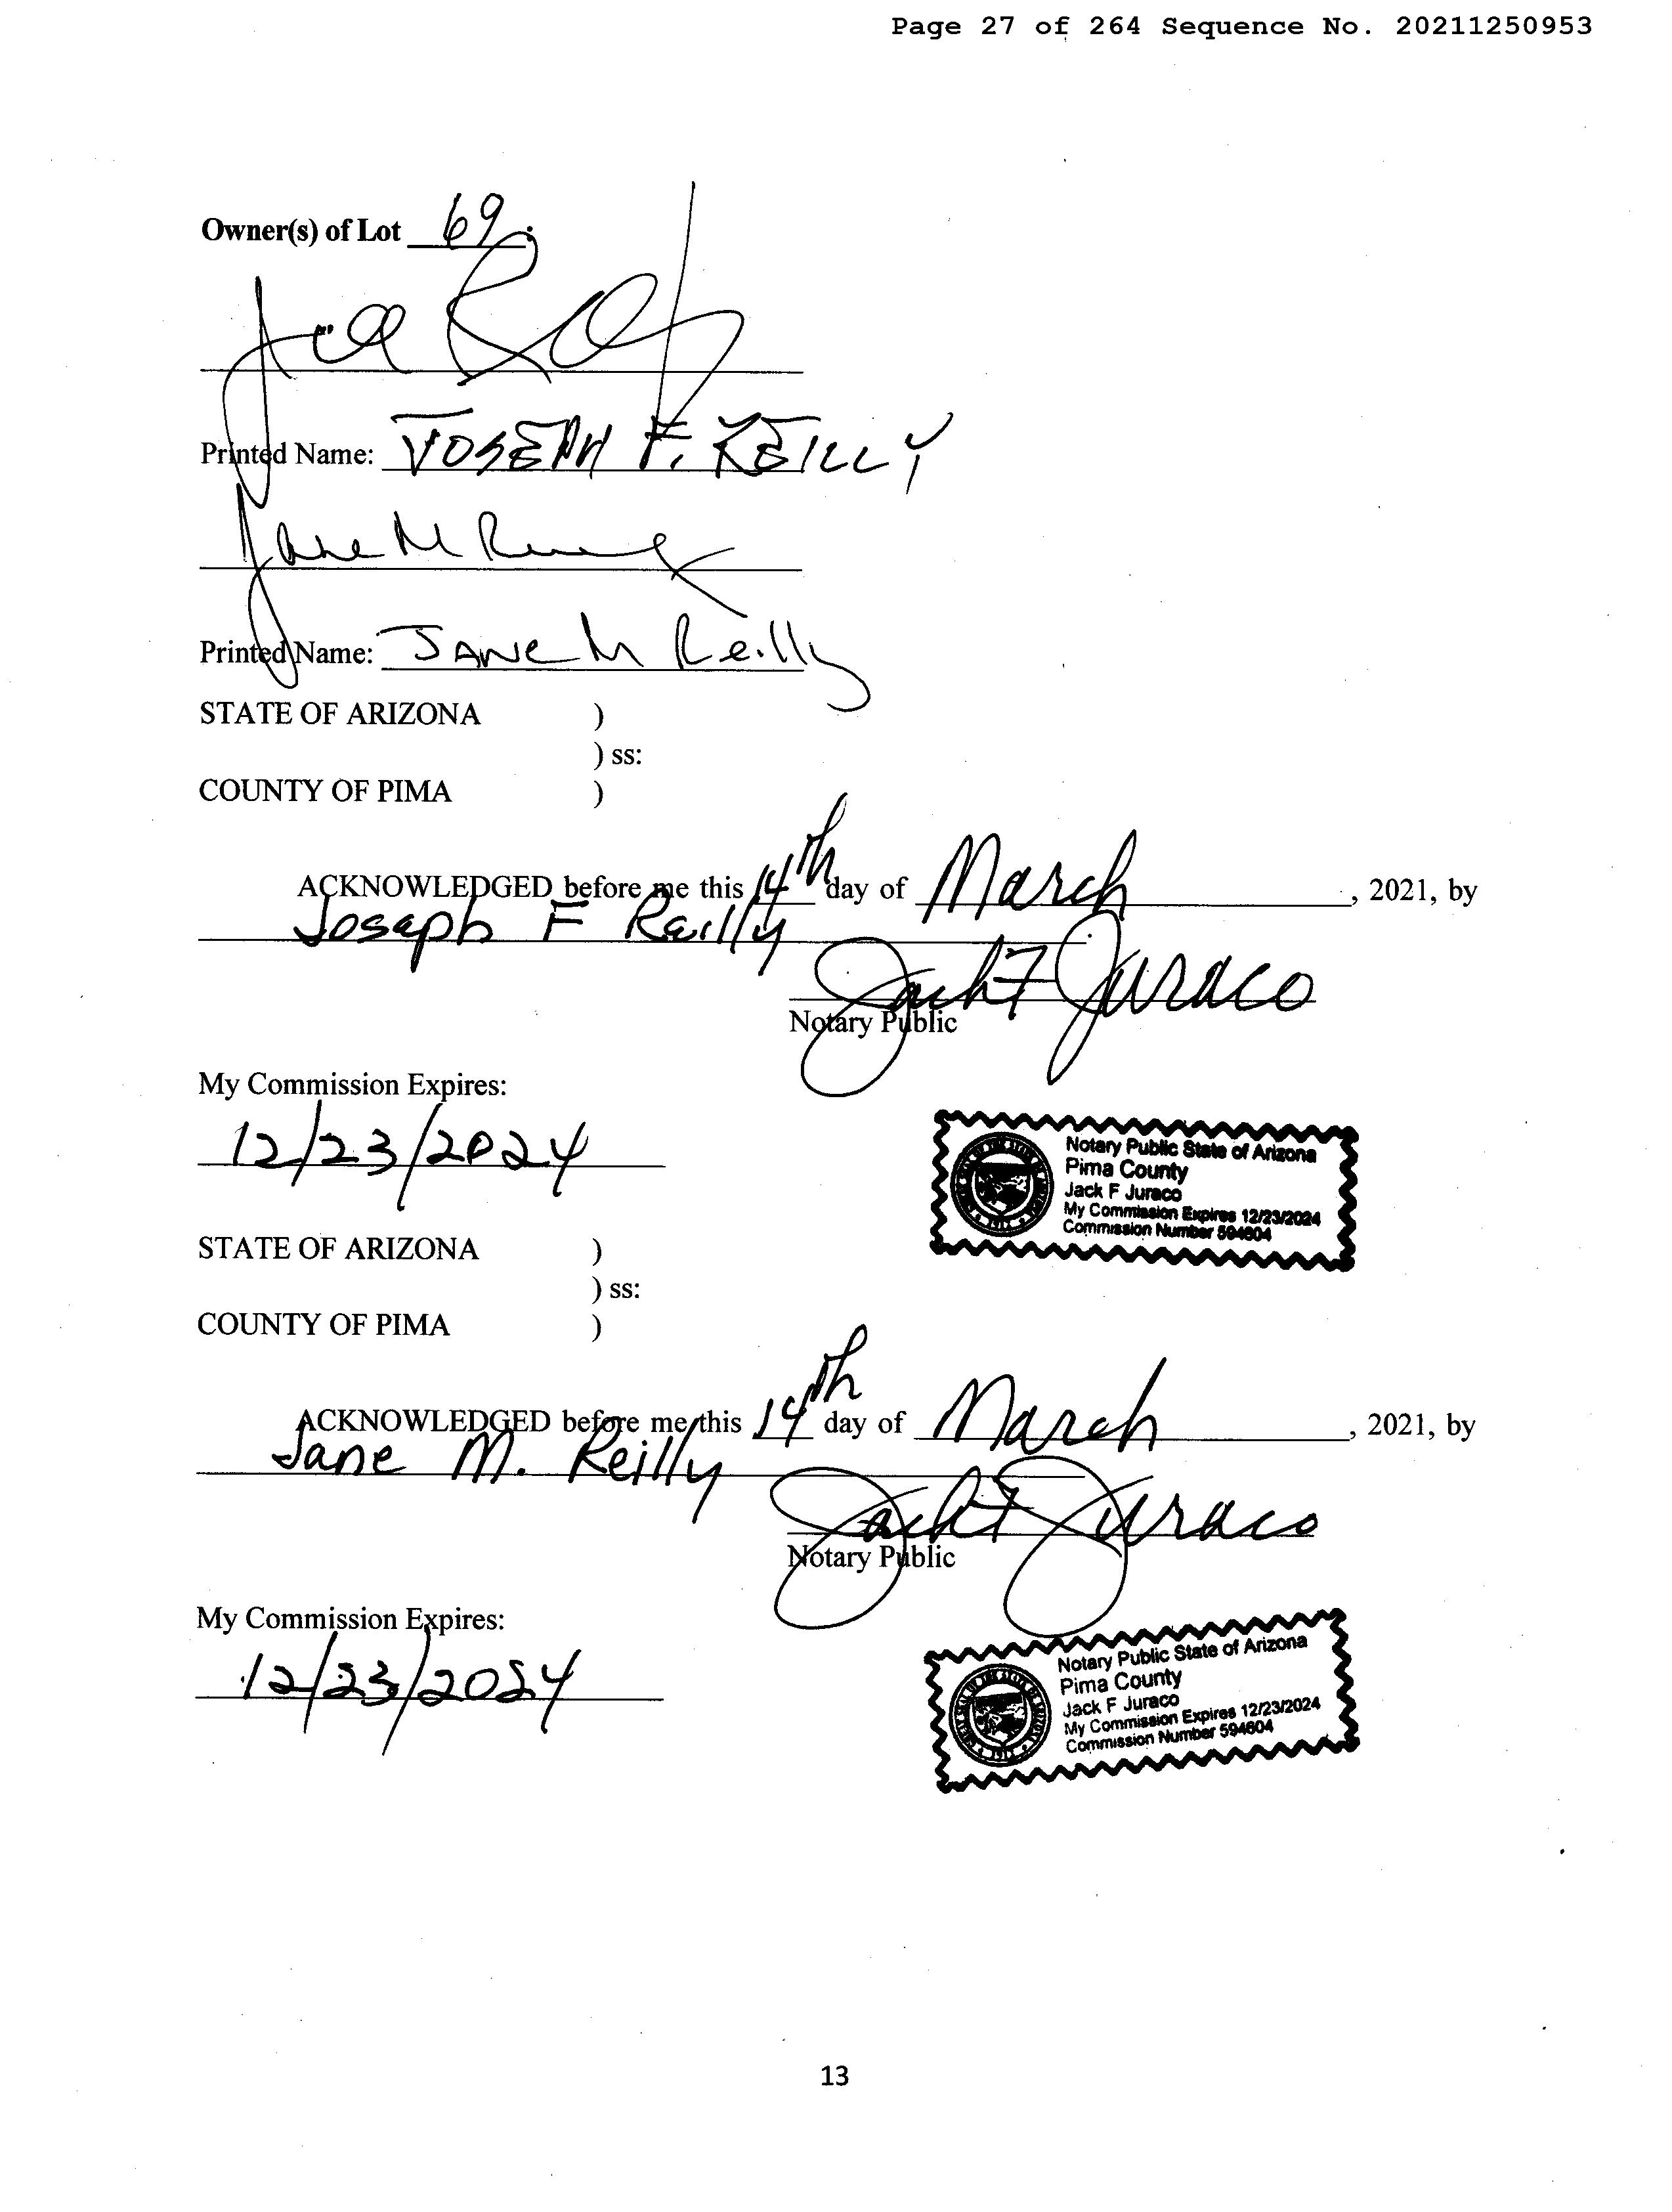 Page 27 of 264 Sequence No. 20211250953
Owner(s) of Lot 69.
Printed Name: JOSEPH F. REILLY
Jane M Reilly
Printed Name: JANE M Reilly
STATE OF ARIZONA )
) ss:
COUNTY OF PIMA )
ACKNOWLEDGED before me this 14th day of March, 2021, by
Joseph F Reilly
Jack F Juraco
Notary Public
My Commission Expires:
12/23/2024
Notary Public State of Arizona
Pima County
Jack F Juraco
My Commission Expires 12/23/2024
Commission Number 594604
STATE OF ARIZONA )
) ss:
COUNTY OF PIMA )
ACKNOWLEDGED before me this 14th day of March, 2021, by
Jane M. Reilly
Jack F Juraco
Notary Public
My Commission Expires:
12/23/2024
Notary Public State of Arizona
Pima County
Jack F Juraco
My Commission Expires 12/23/2024
Commission Number 594604
13